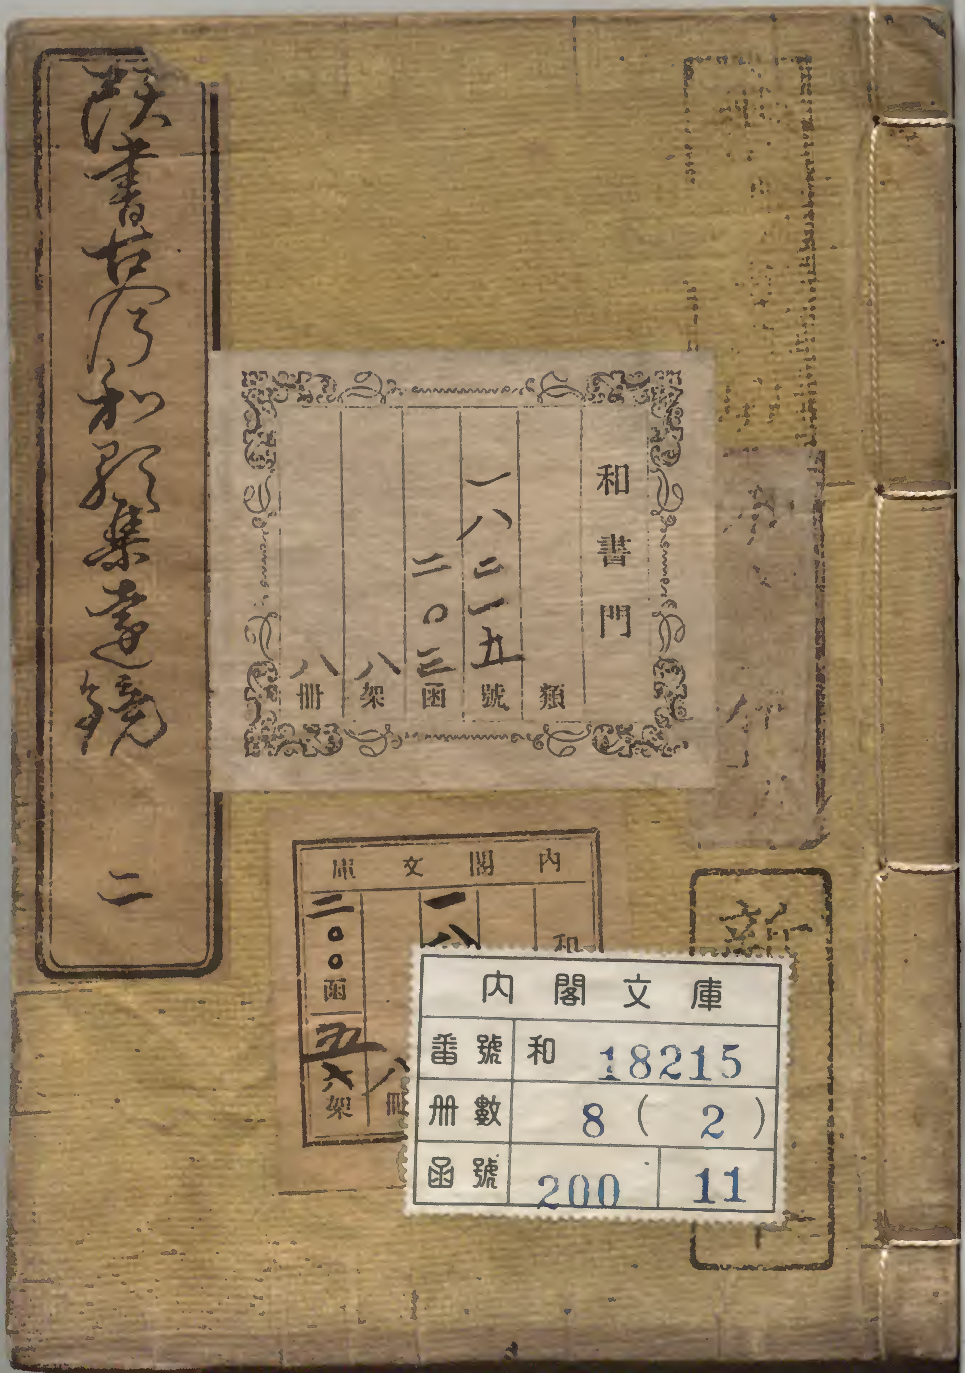 頭書古今和歌集遠鏡 二
和書門
類
一八二一五號
二〇三函
八架
八冊
内閣文庫
和
一八
八冊
二〇〇函
架
内閣文庫
番號 和 18215
冊數 8 ( 2 )
函號 200 11